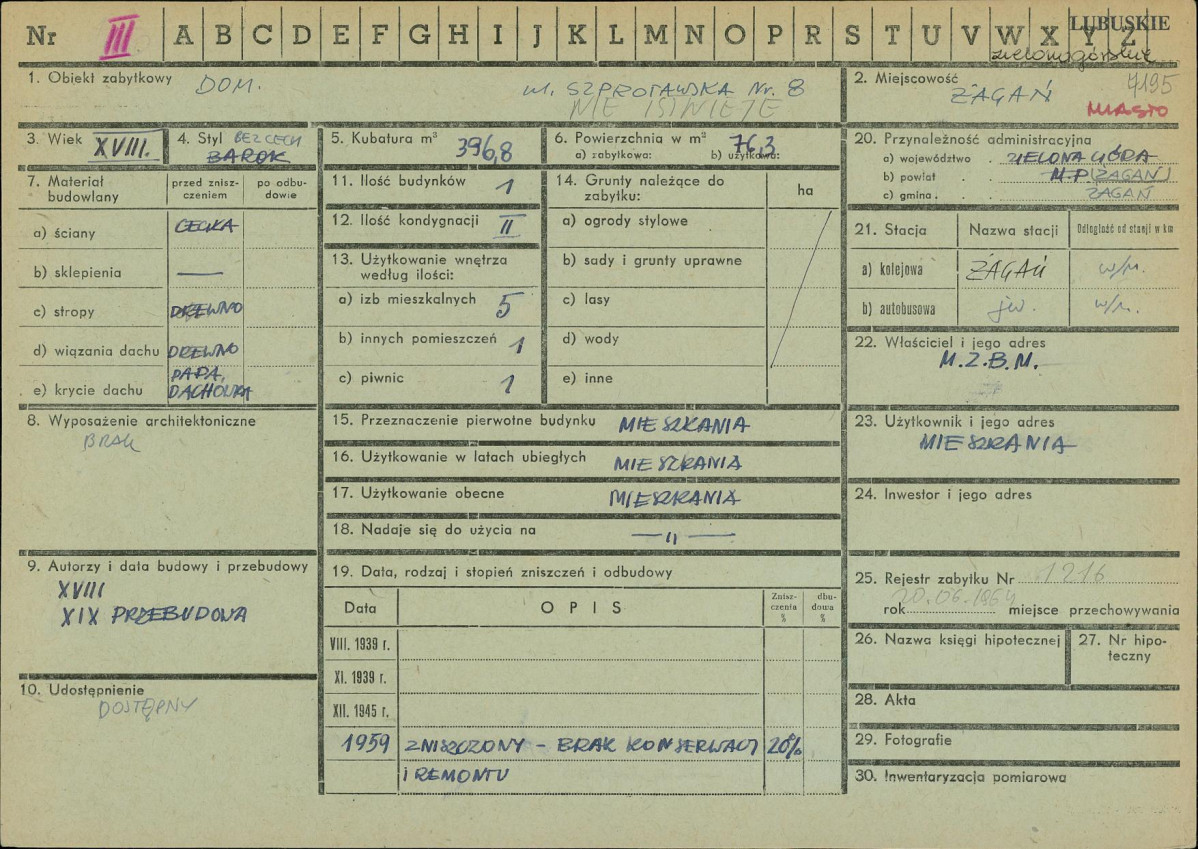 Nr III A B C D E F G H I J K L M N O P R S T U V W X Y Z
LUBUSKIE
zielonogórskie
1. Obiekt zabytkowy DOM. ul. SZPROTAWSKA Nr. 8
NIE ISTNIEJE
2. Miejscowość 7195
ŻAGAŃ
MIASTO
3. Wiek XVIII.
4. Styl BEZ CECH
BAROK
5. Kubatura m³ 396,8
6. Powierzchnia w m² 76,3
a) zabytkowa: b) użytkowa:
20. Przynależność administracyjna
a) województwo . ZIELONA GÓRA
b) powiat . . M.P. (ŻAGAŃ)
c) gmina . . ŻAGAŃ
7. Materiał budowlany
przed znisz-
czeniem
po odbu-
dowie
a) ściany CEGŁA
b) sklepienia —
c) stropy DREWNO
d) wiązania dachu DREWNO
e) krycie dachu PAPA, DACHÓWKA
11. Ilość budynków 1
12. Ilość kondygnacji II
13. Użytkowanie wnętrza
według ilości:
a) izb mieszkalnych 5
b) innych pomieszczeń 1
c) piwnic 1
14. Grunty należące do
zabytku:
ha
a) ogrody stylowe
b) sady i grunty uprawne
c) lasy
d) wody
e) inne
21. Stacja Nazwa stacji Odległość od stacji w km
a) kolejowa ŻAGAŃ w/m.
b) autobusowa jw. w/m.
22. Właściciel i jego adres
M.Z.B.M.
8. Wyposażenie architektoniczne
BRAK
15. Przeznaczenie pierwotne budynku MIESZKANIA
16. Użytkowanie w latach ubiegłych MIESZKANIA
17. Użytkowanie obecne MIESZKANIA
18. Nadaje się do użycia na —"—
23. Użytkownik i jego adres
MIESZKANIA
24. Inwestor i jego adres
9. Autorzy i data budowy i przebudowy
XVIII
XIX PRZEBUDOWA
10. Udostępnienie
DOSTĘPNY
19. Data, rodzaj i stopień zniszczeń i odbudowy
Data OPIS Znisz-
czenia
% dbu-
dowa
%
VIII. 1939 r.
XI. 1939 r.
XII. 1945 r.
1959 ZNISZCZONY – BRAK KONSERWACJI 20%
I REMONTU
25. Rejestr zabytku Nr 1216
20.06.1964
rok miejsce przechowywania
26. Nazwa księgi hipotecznej
27. Nr hipo-
teczny
28. Akta
29. Fotografie
30. Inwentaryzacja pomiarowa